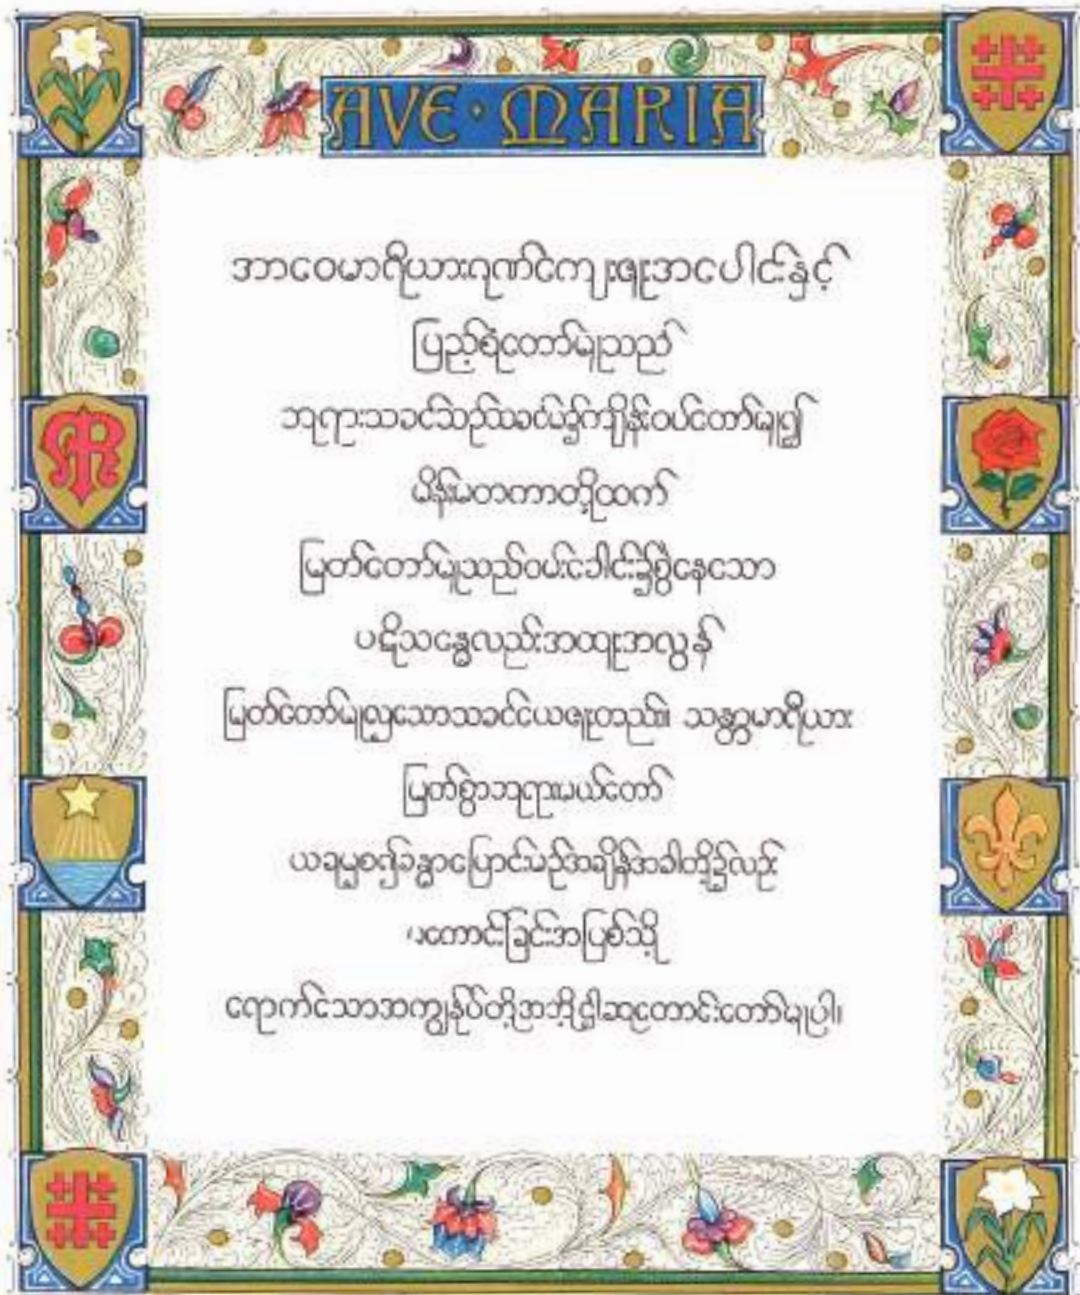 AVE · MARIA
အာဝေမာရီယားဂုဏ်ကျေးဇူးအပေါင်းနှင့်
ပြည့်စုံတော်မူသည်
ဘုရားသခင်သည်သခင်မ၌ကျိန်းဝပ်တော်မူ၍
မိန်းမတကာတို့ထက်
မြတ်တော်မူသည်ဝမ်းခေါင်း၌စွဲနေသော
ပဋိသန္ဓေလည်းအထူးအလွန်
မြတ်တော်မူလှသောသခင်ယေဇူးတည်း။ သန္တာမာရီယား
မြတ်စွာဘုရားမယ်တော်
ယခုမှစ၍ခန္ဓာပြောင်းမဉ်အချိန်အခါတို့၌လဉ်း
မကောင်းခြင်းအပြစ်သို့
ရောက်သောအကျွန်ုပ်တို့အဘို့ဌါဆုတောင်းတော်မူပါ။